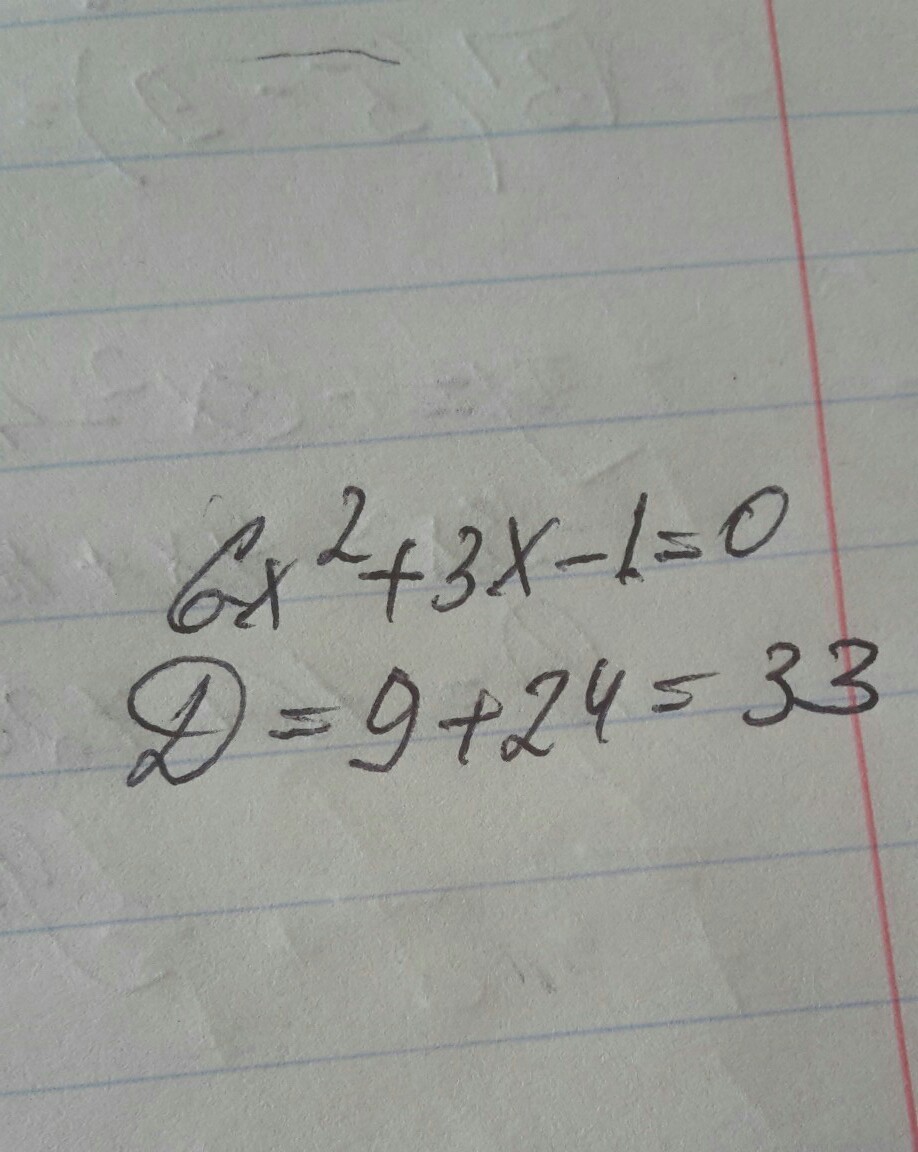 6x²+3x-1=0
D=9+24=33